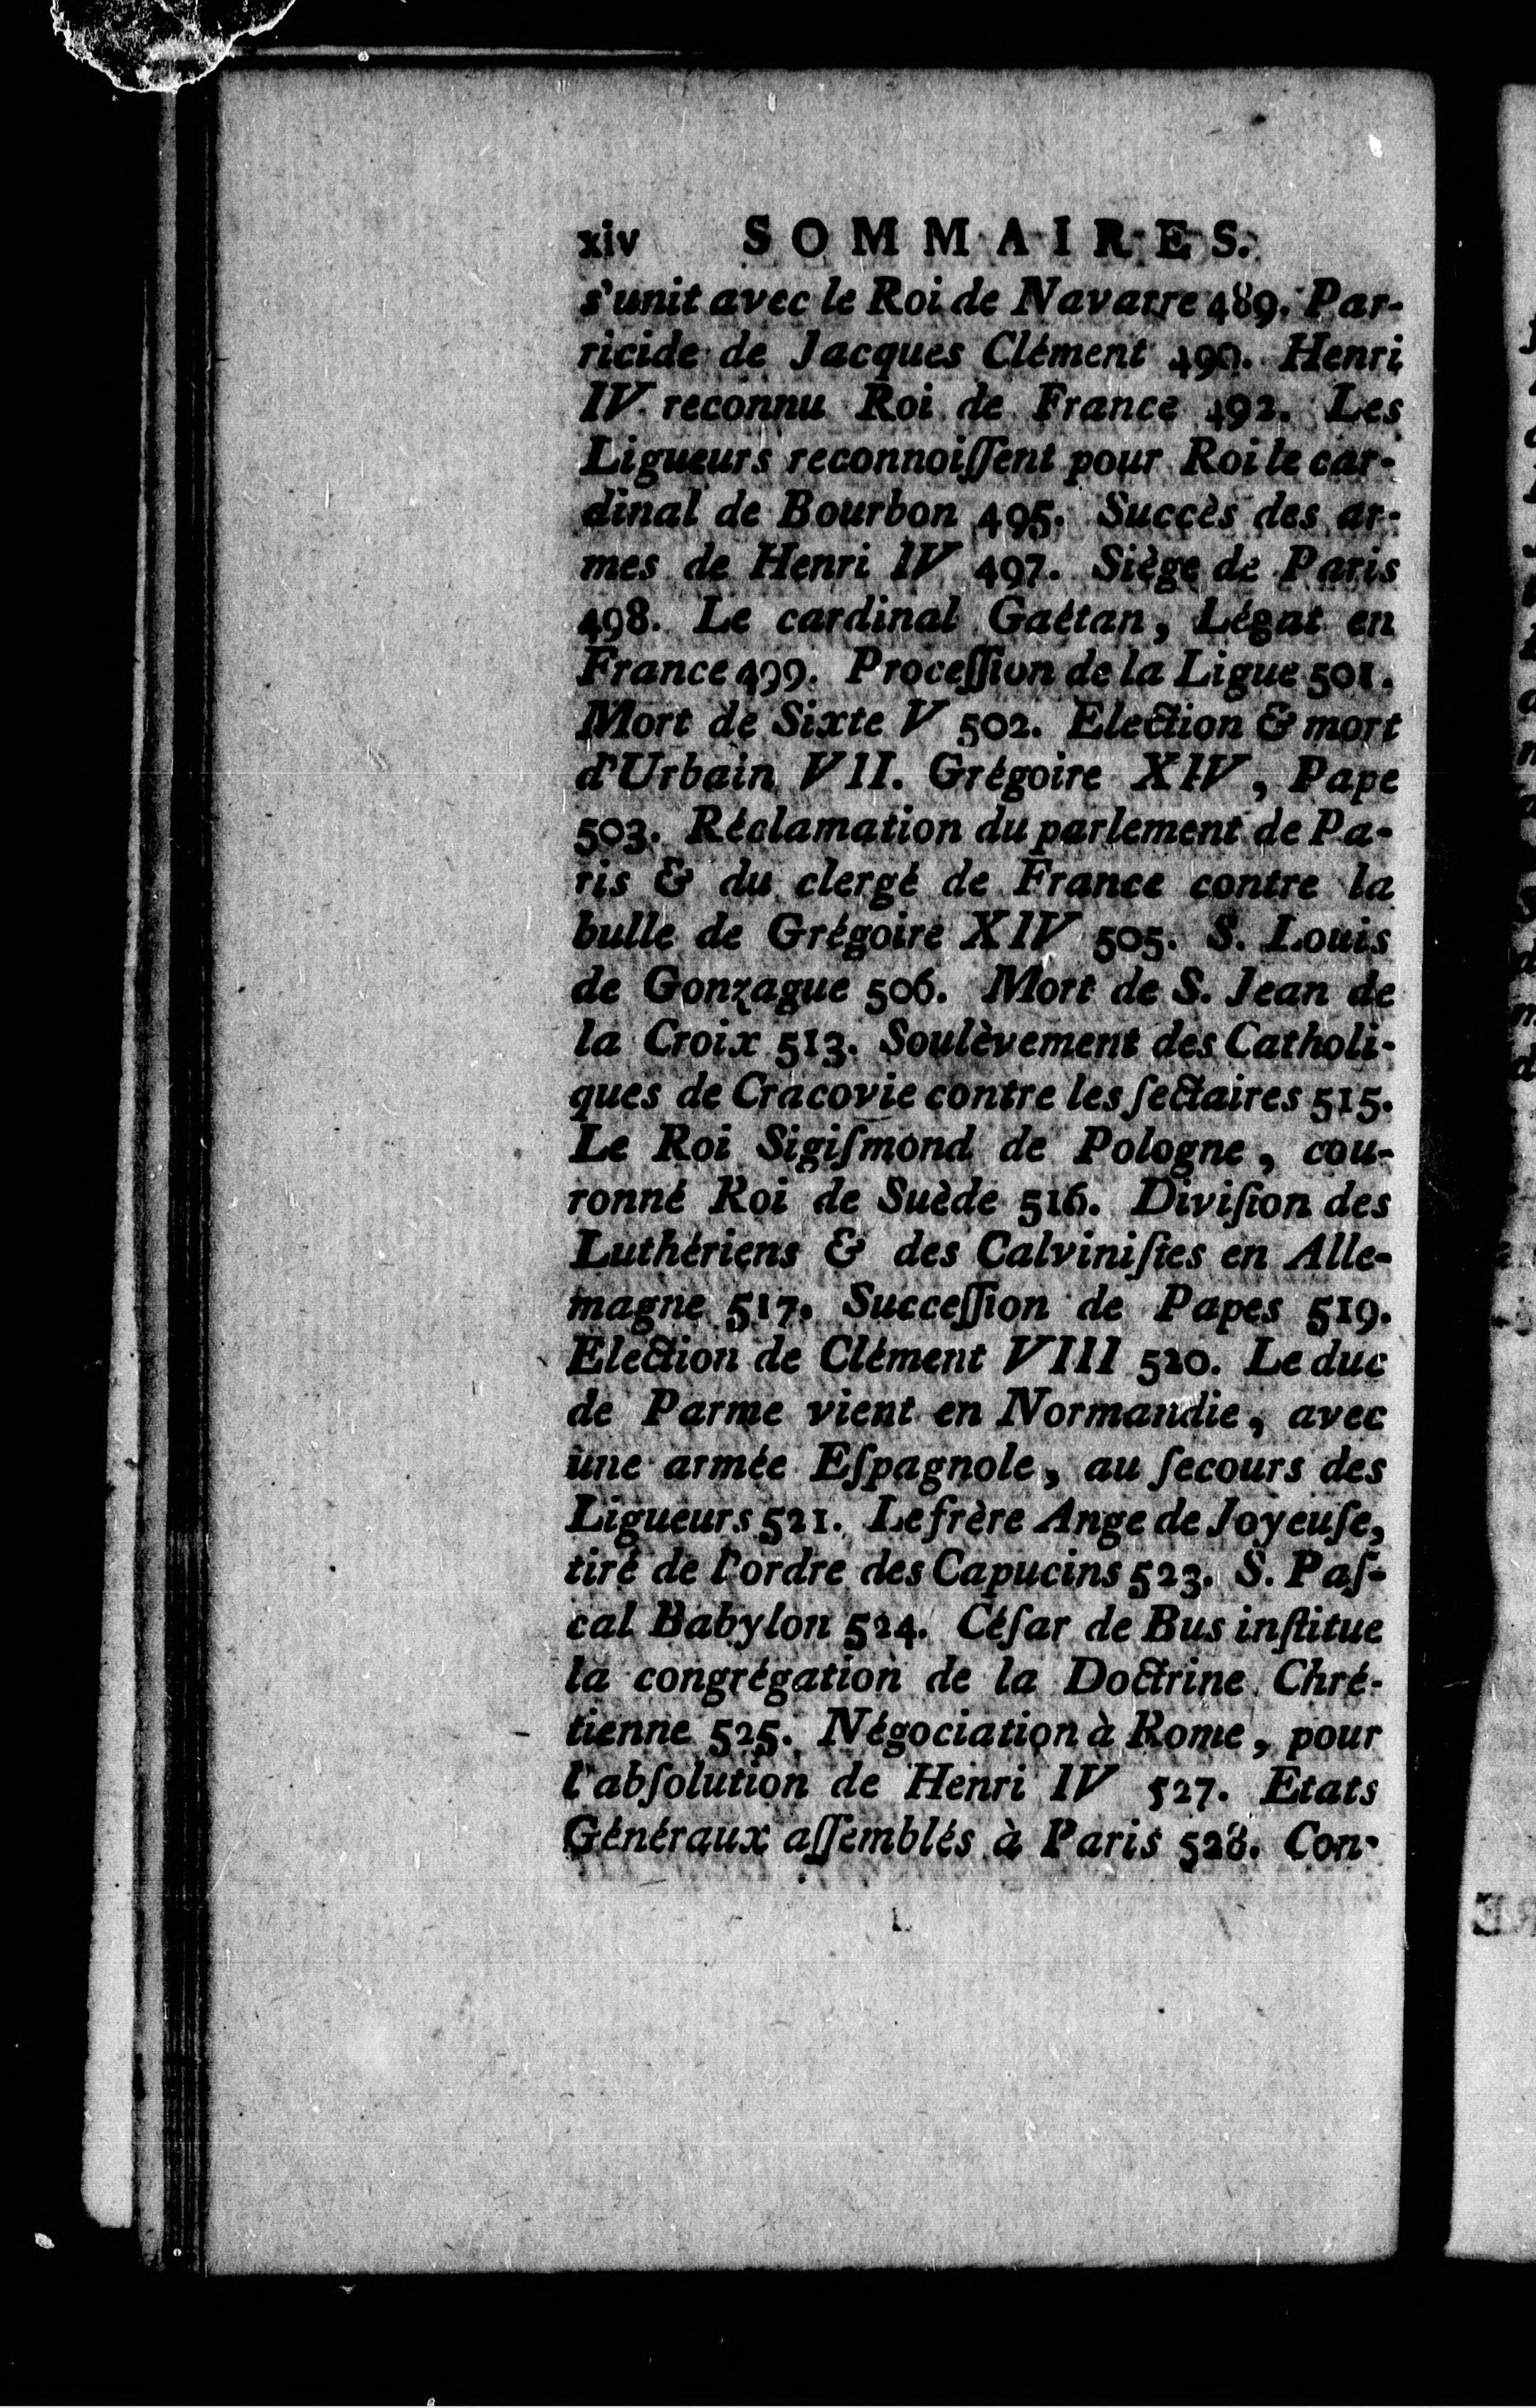 xiv SOMMAIRES.
s'unit avec le Roi de Navarre 489. Par-
ricide de Jacques Clément 490. Henri
IV reconnu Roi de France 492. Les
Ligueurs reconnoiſſent pour Roi le car-
dinal de Bourbon 495. Succès des ar-
mes de Henri IV 497. Siège de Paris
498. Le cardinal Gaétan, Légat en
France 499. Proceſſion de la Ligue 501.
Mort de Sixte V 502. Election & mort
d'Urbain VII. Grégoire XIV, Pape
503. Réclamation du parlement de Pa-
ris & du clergé de France contre la
bulle de Grégoire XIV 505. S. Louis
de Gonzague 506. Mort de S. Jean de
la Croix 513. Soulèvement des Catholi-
ques de Cracovie contre les ſectaires 515.
Le Roi Sigiſmond de Pologne, cou-
ronné Roi de Suède 516. Diviſion des
Luthériens & des Calviniſtes en Alle-
magne 517. Succeſſion de Papes 519.
Election de Clément VIII 520. Le duc
de Parme vient en Normandie, avec
une armée Eſpagnole, au ſecours des
Ligueurs 521. Le frère Ange de Joyeuſe,
tiré de l'ordre des Capucins 523. S. Paſ-
cal Babylon 524. Céſar de Bus inſtitue
la congrégation de la Doctrine Chré-
tienne 525. Négociation à Rome, pour
l'abſolution de Henri IV 527. Etats
Généraux aſſemblés à Paris 528. Con-